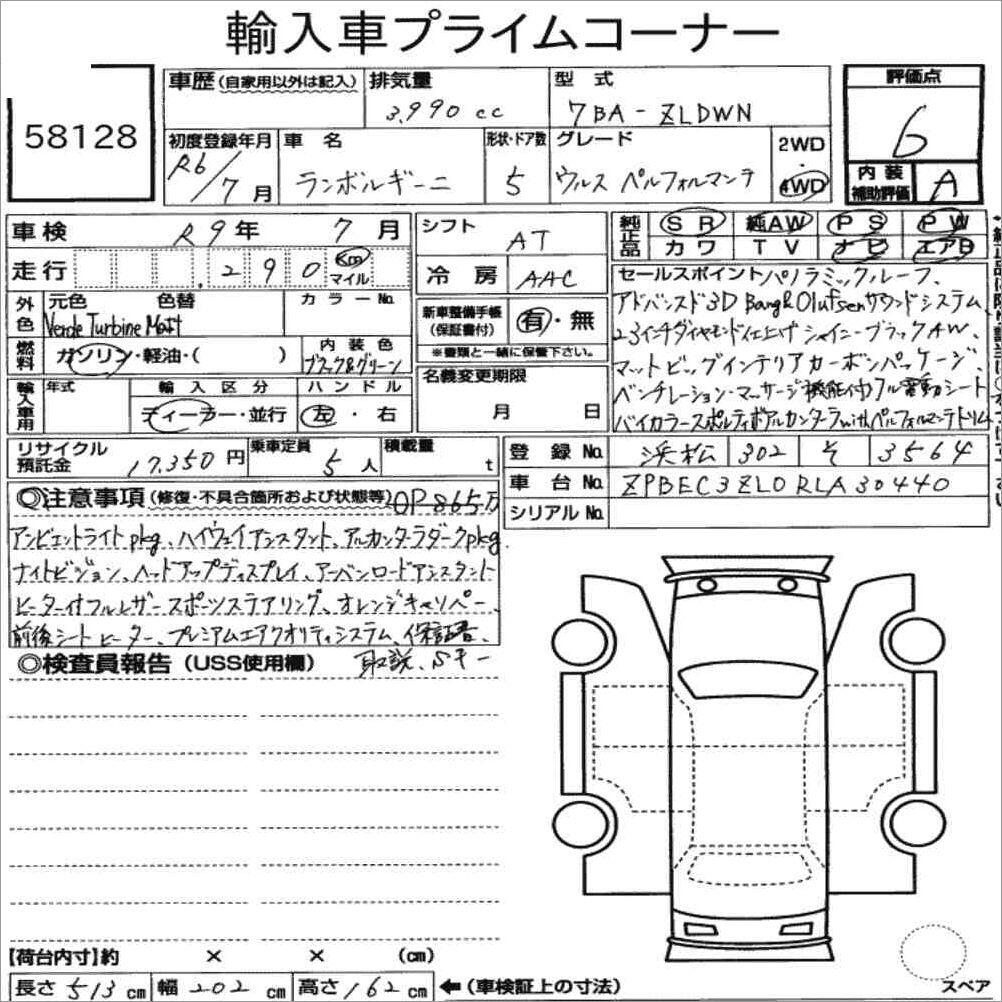 輸入車プライムコーナー
58128
車歴(自家用以外は記入)
排気量
3,990 cc
型式
7BA-ZLDWN
評価点
6
内装補助評価
A
初度登録年月
R6/7月
車名
ランボルギーニ
形状・ドア数
5
グレード
ウルス ペルフォルマンテ
2WD
・
4WD
車検 R9年 7月
走行 290 Km マイル
シフト AT
冷房 AAC
純正品 SR 純AW PS PW
カワ TV ナビ エアB
外色 元色 色替 カラーNo.
Verde Turbine Matt
燃料 ガソリン・軽油・( )
内装色
ブラック&グリーン
新車整備手帳(保証書付) 有・無
※書類と一緒に保管下さい。
名義変更期限
月 日
輸入車用 年式 輸入区分 ハンドル
ディーラー・並行 左・右
セールスポイント パノラミックルーフ、
アドバンスド3D Bang&Olufsenサウンドシステム、
23インチダイヤモンド仕上げ シャイニーブラックAW、
マットビッグインテリアカーボンパッケージ、
ベンチレーション・マッサージ機能付フル電動シート
バイカラースポルティボアルカンターラwithペルフォルマンテトリム
リサイクル預託金 17,350円
乗車定員 5人
積載量 t
登録No. 浜松 302 そ 3564
車台No. ZPBEC3ZL0RLA30440
シリアルNo.
◎注意事項(修復・不具合箇所および状態等) OP865万
アンビエントライトpkg、ハイウェイアシスタント、アルカンターラダークpkg、
ナイトビジョン、ヘッドアップディスプレイ、アーバンロードアシスタント
ヒーター付フルレザースポーツステアリング、オレンジキャリパー、
前後シートヒーター、プレミアムエアクオリティシステム、保証書、
取説、Sキー
◎検査員報告(USS使用欄)
【荷台内寸】約 × × (cm)
長さ 513 cm 幅 202 cm 高さ 162 cm ←(車検証上の寸法)
スペア